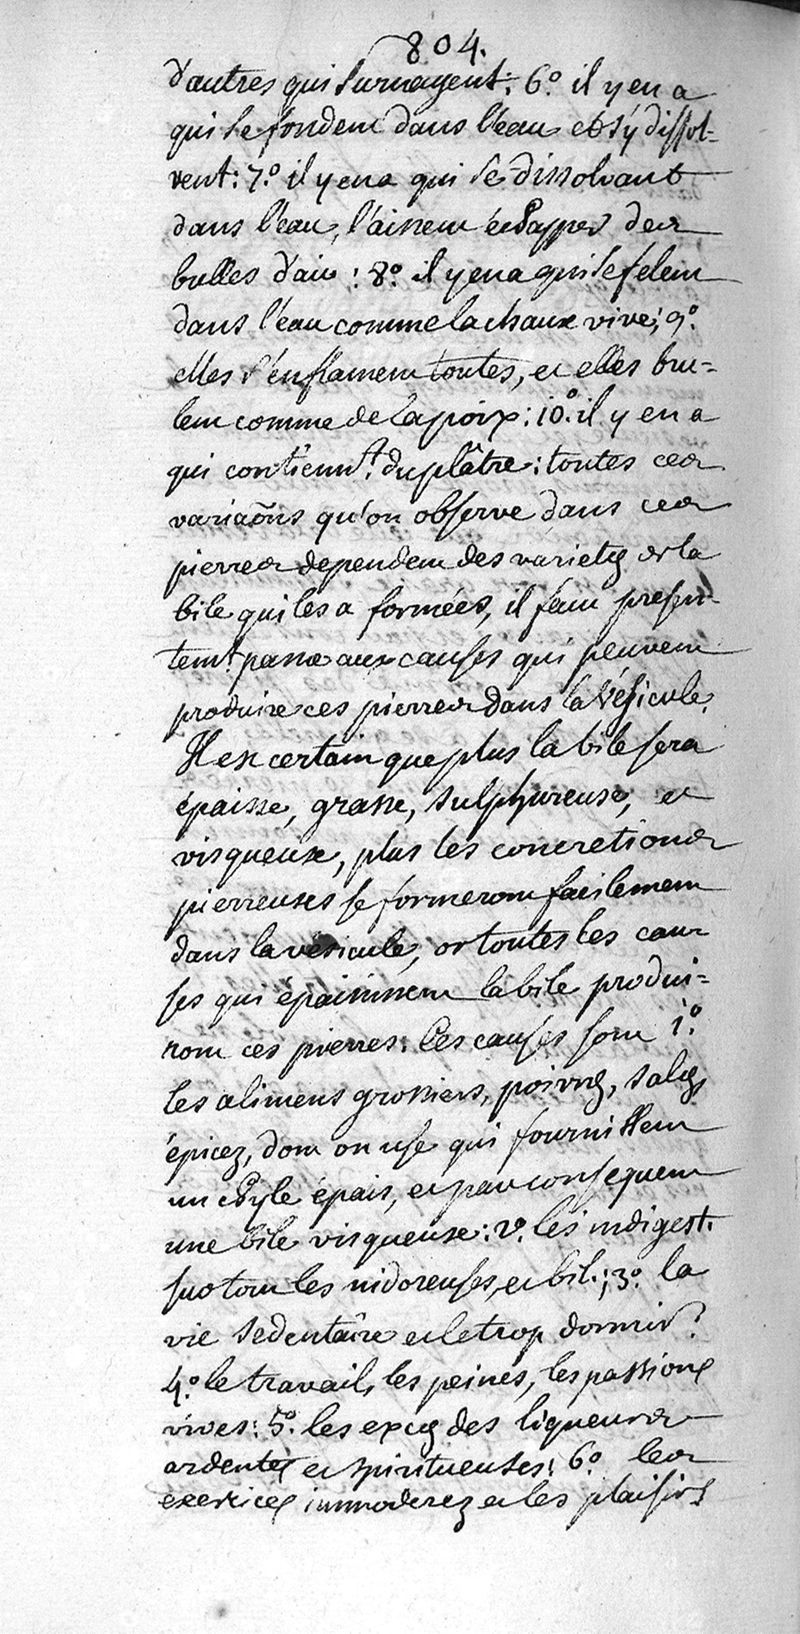 804.
d'autres qui surnagent: 6.° il y en a
qui se fondent dans l'eau et s'y dissol-
vent: 7.° il y en a qui se dissolvant
dans l'eau, laissent échapper des
bulles d'air: 8.° il y en a qui se felent
dans l'eau comme la chaux vive; 9.°
elles s'enflament toutes, et elles bru-
lent comme de la poix: 10.° il y en a
qui contienn.t du plâtre: toutes ces
variaõns qu'on observe dans ces
pierres dependent des varietez de la
bile qui les a formées, il faut presen-
tem.t passer aux causes qui peuvent
produire ces pierres dans la vésicule.
Il est certain que plus la bile sera
épaisse, grasse, sulphureuse, et
visqueuse, plus les concretions
pierreuses se formeront facilement
dans la vésicule, or toutes les cau-
ses qui épaississent la bile produi-
ront ces pierres: les causes sont 1.°
les alimens grossiers, poivrez, salez,
épicez, dont on use qui fournissent
un chyle épais, et par consequent
une bile visqueuse: 2.° les indigest.
surtout les nidoreuses, et bil.; 3.° la
vie sedentaire et le trop dormir:
4.° le travail, les peines, les passions
vives: 5.° les excez des liqueurs
ardentes et spiritueuses: 6.° les
exercices immoderez et les plaisirs